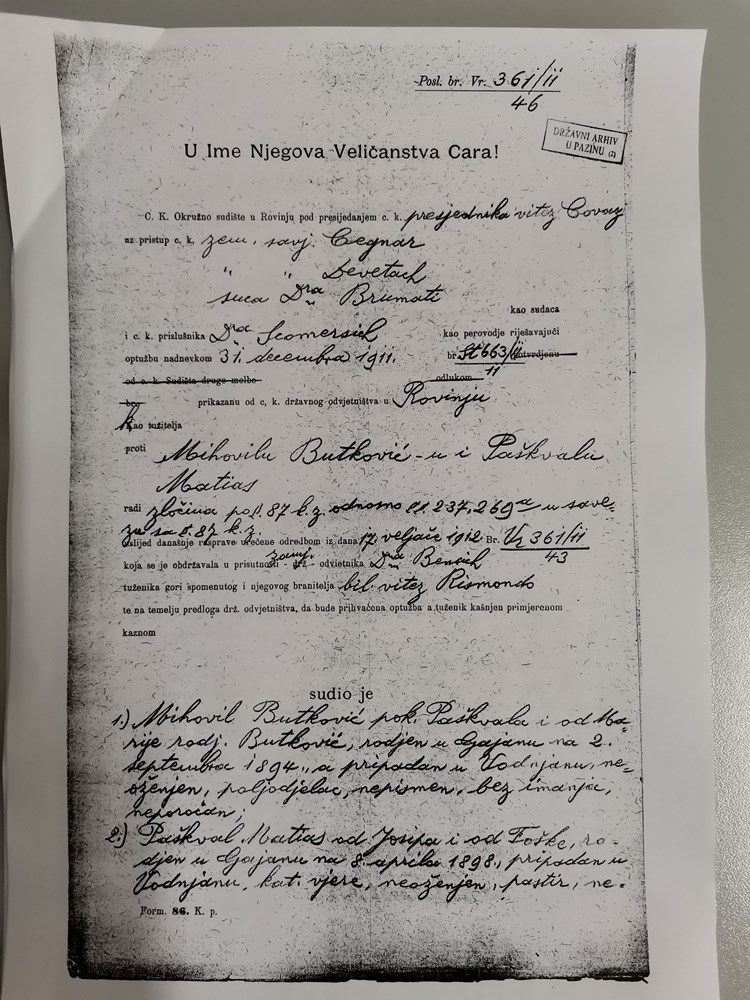 Posl. br. Vr. 361/11
46
DRŽAVNI ARHIV
U PAZINU (2)
U Ime Njegova Veličanstva Cara!
C. K. Okružno sudište u Rovinju pod presijedanjem c. k. presjednika vitez Covaz
uz pristup c. k. zem. savj. Cegnar
" " Devetach
suca Dra Brumati
kao sudaca
i c. k. prislušnika Dra Scomersich kao perovodje riješavajući
optužbu nadnevkom 31. decembra 1911. br. St 663/11 potvrdjenu
od c. k. Sudišta druge molbe odlukom 11
broj prikazanu od c. k. državnog odvjetništva u Rovinju
kao tužitelja
proti Mihovilu Butković-u i Paškvalu
Matias
radi zločina po §. 87 k.z. odnosno §§. 237, 269a u save-
zu sa §. 87 k.z.
uslijed današnje rasprave urečene odredbom iz dana 17. veljače 1912 Br. Vr 361/11
43
koja se je obdržavala u prisutnosti zamj. drž. odvjetnika Dra Bencich
tuženika gori spomenutog i njegovog branitelja bil. vitez Rismondo
te na temelju predloga drž. odvjetništva, da bude prihvaćena optužba a tuženik kašnjen primjerenom
kaznom
sudio je
1.) Mihovil Butković pok. Paškvala i od Ma-
rije rodj. Butković, rodjen u Gajanu na 2.
septembra 1894., a pripadan u Vodnjanu, ne-
oženjen, poljodjelac, nepismen, bez imanja,
neporočan;
2.) Paškval Matias od Josipa i od Foške, ro-
djen u Gajanu na 8. aprila 1898., pripadan u
Vodnjanu, kat. vjere, neoženjen, pastir, ne-
Form. 86. K. p.